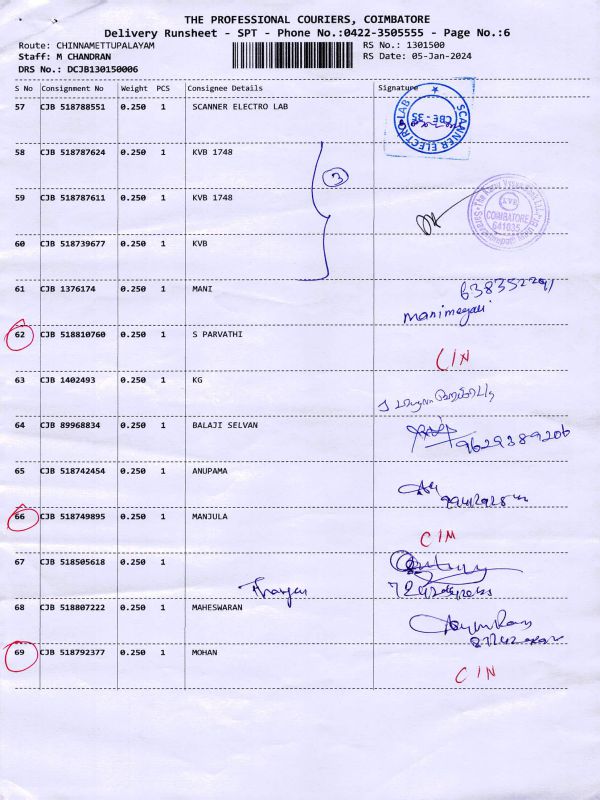 THE PROFESSIONAL COURIERS, COIMBATORE
Delivery Runsheet - SPT - Phone No.:0422-3505555 - Page No.:6
Route: CHINNAMETTUPALAYAM RS No.: 1301500
Staff: M CHANDRAN RS Date: 05-Jan-2024
DRS No.: DCJB130150006
S No Consignment No Weight PCS Consignee Details Signature
57 CJB 518788551 0.250 1 SCANNER ELECTRO LAB
SCANNER ELECTRO LAB
CBE-35
58 CJB 518787624 0.250 1 KVB 1748
3
59 CJB 518787611 0.250 1 KVB 1748
COIMBATORE
641035
60 CJB 518739677 0.250 1 KVB
61 CJB 1376174 0.250 1 MANI
Manimegali
62 CJB 518810760 0.250 1 S PARVATHI
C/N
63 CJB 1402493 0.250 1 KG
64 CJB 89968834 0.250 1 BALAJI SELVAN
9629389206
65 CJB 518742454 0.250 1 ANUPAMA
66 CJB 518749895 0.250 1 MANJULA
C/N
67 CJB 518505618 0.250 1
68 CJB 518807222 0.250 1 MAHESWARAN
69 CJB 518792377 0.250 1 MOHAN
C/N